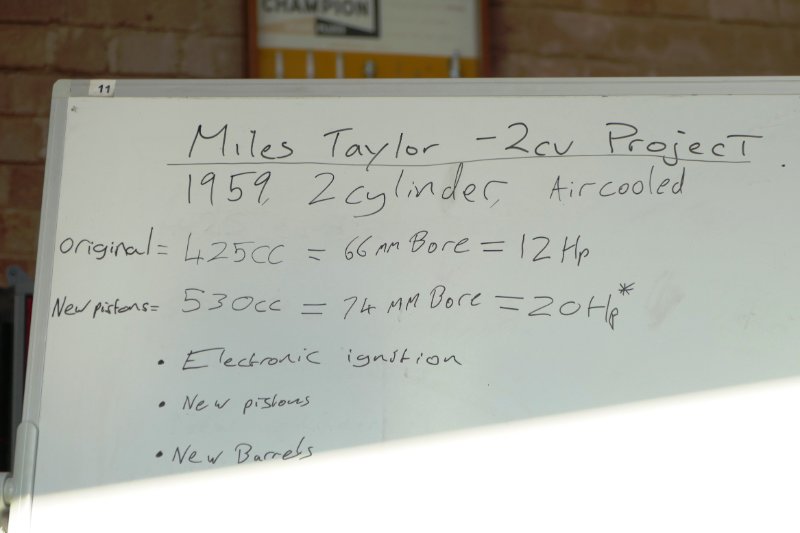 CHAMPION
11
Miles Taylor - 2cv Project.
1959, 2 cylinder, Aircooled
original = 425cc = 66 mm Bore = 12 Hp
New pistons = 530cc = 74 MM Bore = 20 Hp*
• Electronic ignition
• New pistons
• New Barrels